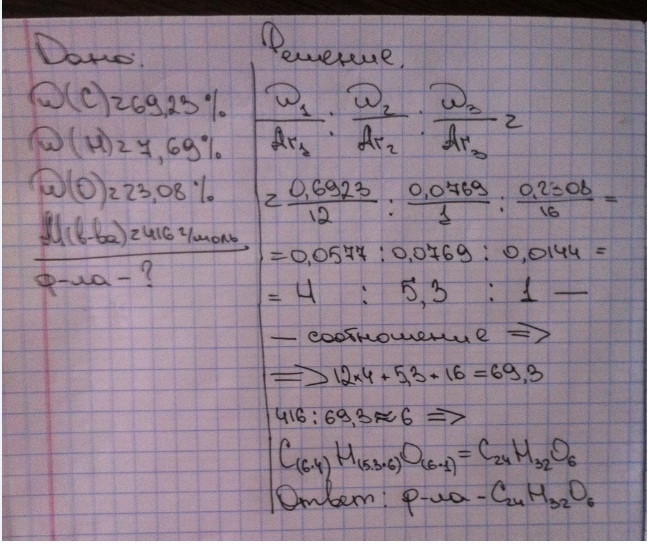 Дано:
W(C)=69,23%
W(H)=7,69%
W(O)=23,08%
M(в-ва)=416 г/моль
ф-ла - ?
Решение.
W₁/Ar₁ : W₂/Ar₂ : W₃/Ar₃ =
= 0,6923/12 : 0,0769/1 : 0,2308/16 =
= 0,0577 : 0,0769 : 0,0144 =
= 4 : 5,3 : 1 —
— соотношение ⇒
⇒ 12×4 + 5,3 + 16 = 69,3
416 : 69,3 ≈ 6 ⇒
C(6·4) H(5.3·6) O(6·1) = C₂₄H₃₂O₆
Ответ: ф-ла - C₂₄H₃₂O₆